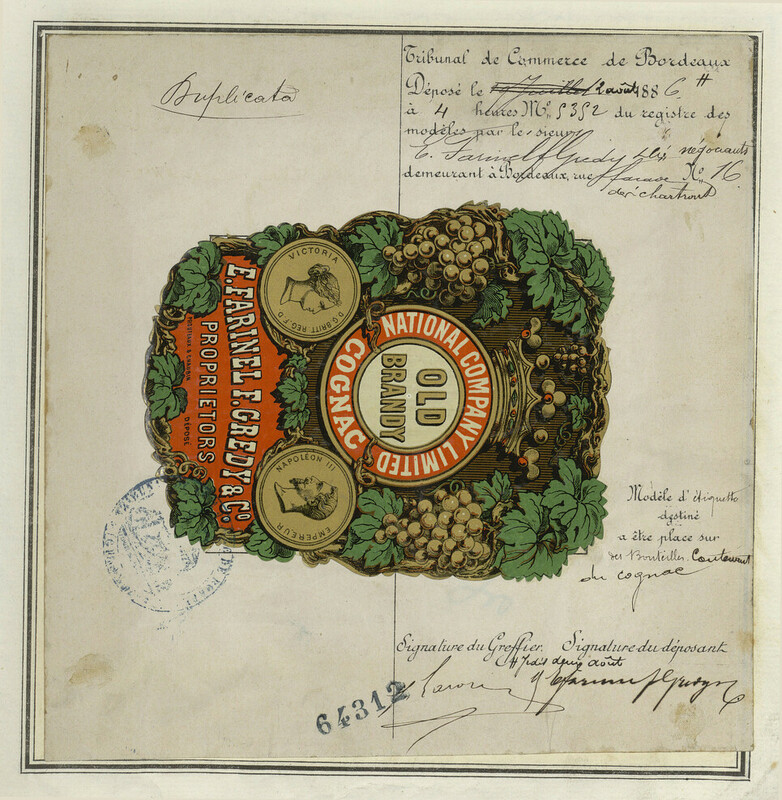 Duplicata
Tribunal de Commerce de Bordeaux
Déposé le 2 août 1886 #
à 4 heures No. 5352 du registre des
modèles par le sieur
E. Farinel f. Gredy & Cie négociants
demeurant à Bordeaux, rue No. 16
des chartrons
VICTORIA
D.G. BRITT. REG. F.D.
NATIONAL COMPANY LIMITED
COGNAC
OLD
BRANDY
NAPOLÉON III
EMPEREUR
E. FARINEL F. GREDY & Co.
PROPRIETORS
DÉPOSÉ
Modèle d'étiquette
destiné
a être place sur
des Bouteilles Contenant
du cognac
Signature du Greffier. Signature du déposant
août
64312